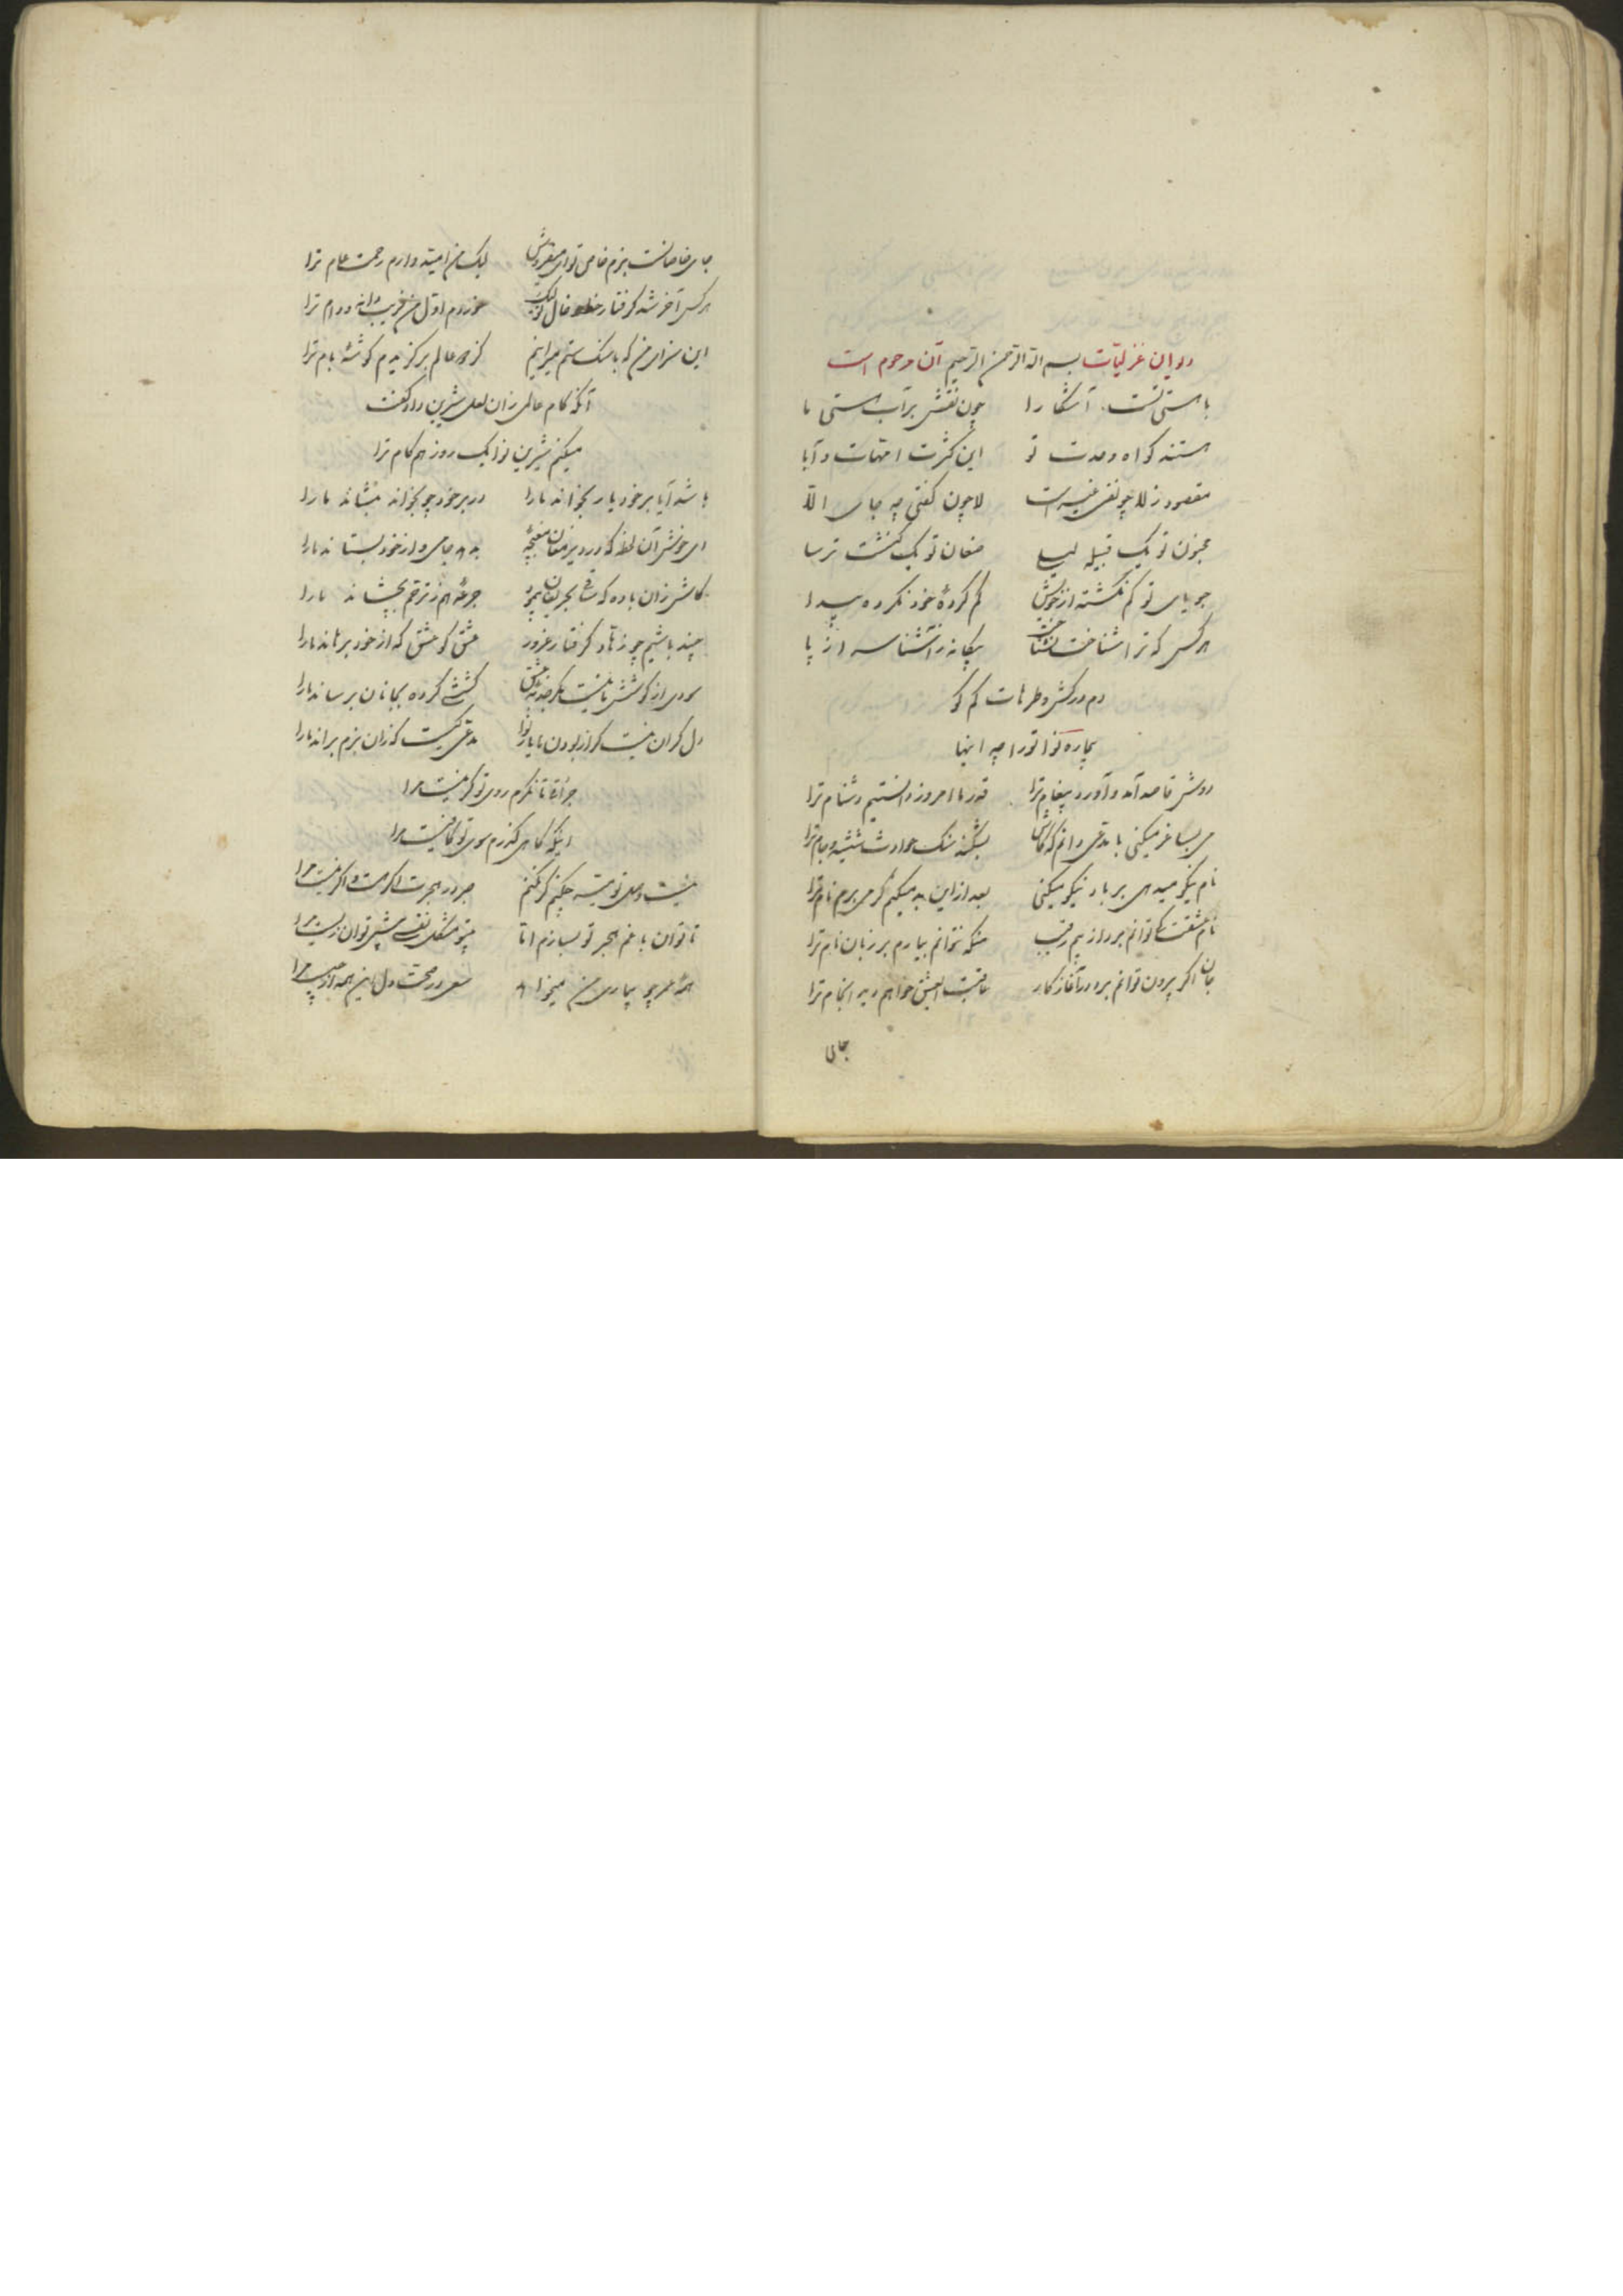 دیوان غزلیات بسم الله الرحمن الرحیم آن مرحوم است
با هستی تست آشکارا چون نقش بر آب هستی ما
هستند گواه وحدت تو این کثرت امهات و آبا
مقصود ز لا چو نفی غیر است لا چون گفتی چه جای الا
مجنون تو یک قبیله لیلی صنعان تو یک کنشت ترسا
جویای تو گم نگشته از خویش گم کردهٔ خود نکرده پیدا
هر کس که ترا شناخت نشناخت بیگانه ز آشنا سر از پا
دم درکش و طرهات کم گو
بیچاره کو اتورا چه اینها
دوش قاصد آمد و آورد پیغام ترا قدر ما امروز دانستیم دشنام ترا
می بساغر میکنی با مدعی دانم که کاش بشکند سنگ حوادث شیشه و جام ترا
نام نیکو میدهی بر باد نیکو میکنی بعد ازاین بد میکنم گر می برم نام ترا
نام عشقت کی توانم برد از بیم رقیب منکه نتوانم بیارم بر زبان نام ترا
جان اگر بیرون توانم برد در آغاز کار عاقبت ای عشق خواهم دید انجام ترا
جای
جای خاصانست بزم خاص تو ای میفروش لیک من امید دارم رحمت عام ترا
هر کس آخر شد گرفتار خط و خال تو لیک خوردم اول من فریب دانه و دام ترا
این سزای من که با سنگ ستم میرانیم کز همه عالم برگزیدم گوشهٔ بام ترا
آنکه کام عالمی زان لعل شیرین داد گفت
میکنم شیرین تو را یک روز هم کام ترا
باشد آیا بر خود یار بخواند ما را در بر خود چو بخواند بنشاند ما را
ای خوش آن لحظه که در دیر مغان مغبچهٔ بدهد جامی و از خود بستاند ما را
کاش زان باده که ساقی بحریفان پیمود جرعهٔ هم ز ترحم بچشاند ما را
چند باشیم چو زهاد گرفتار غرور عشق کو عشق که از خود برهاند ما را
سودی از کوشش ما نیست مگر جذبهٔ عشق کششی کرده بجانان برساند ما را
دل گران نیست گر از بودن ما یار چرا مدعی کیست که زان بزم براند ما را
جرأت تا نگرم روی تو گر نیست مرا
اینکه گاهی گذرم سوی تو کافیست مرا
نیست وصل تو میسر چکنم گر نکنم صبر در هجرت اگر هست و اگر نیست مرا
تا توان با غم هجر تو بسازم اما بیتو مشکل نفسی بیش توان زیست مرا
همهٔ عمر چو بیماری من میخواهد سعی در صحت دل این همه از چیست مرا